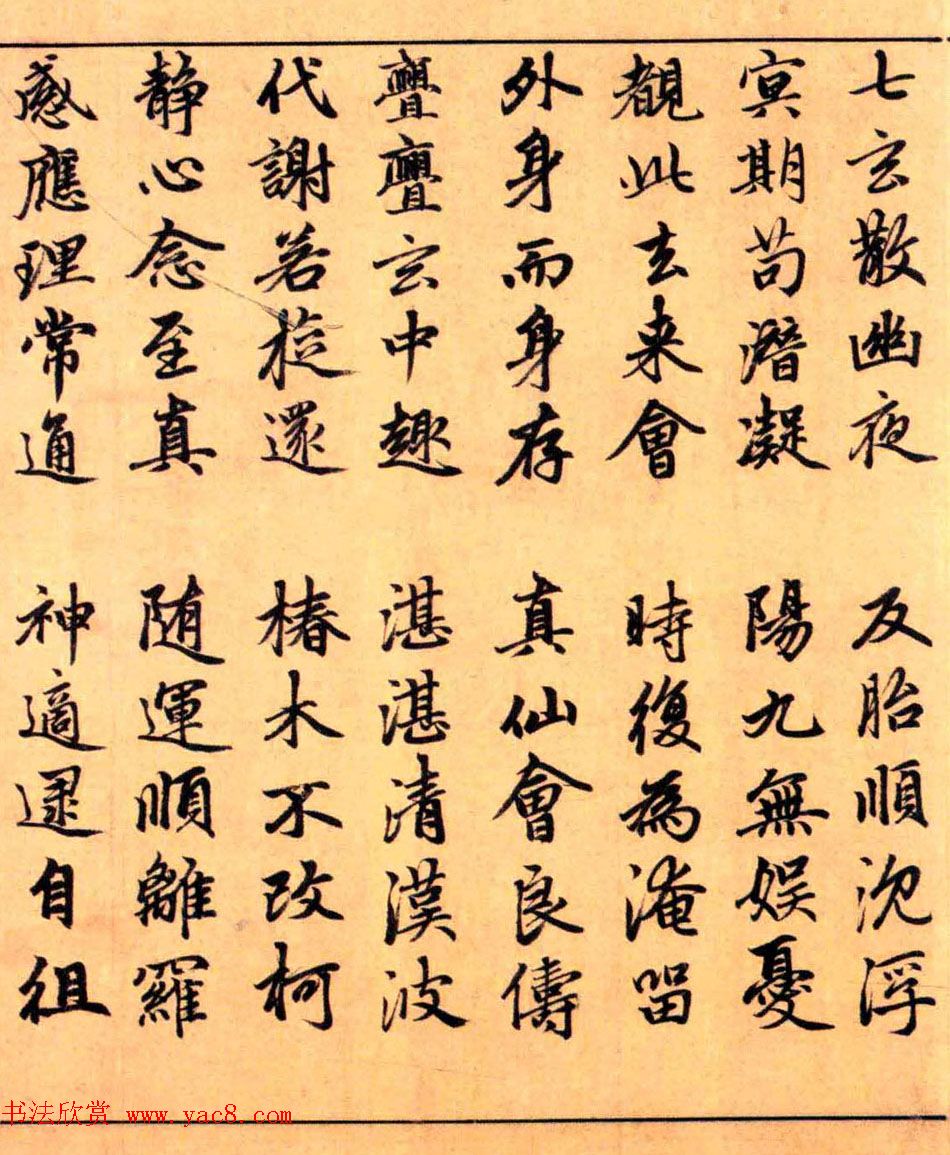 七玄散幽夜 反胎順沉浮
冥期苟潛凝 陽九無娛憂
覩此去来會 時復為淹留
外身而身存 真仙會良儔
亹亹玄中趣 湛湛清漢波
代謝若旋還 椿木不改柯
静心念至真 随運順離羅
感應理常通 神適逯自徂
书法欣赏 www.yac8.com